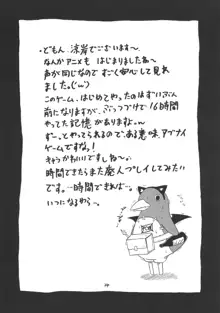 ・どもん、涼岸でございます〜
なんかアニメも はじまりましたね〜
声が同じなので すごく安心して見れ
ました。(´ω`)
このゲーム、はじめてやったのはずいぶん
前になりますが、ぶっつづけで16時間
やってた記憶がありますよ。
ずーっとやってられるので、ある意味アブナイ
ゲームですな!
キャラかわいいですしね〜。
時間できたらまた廃人プレイしてみたい
です。…時間できれば…。
いつになるやら…。